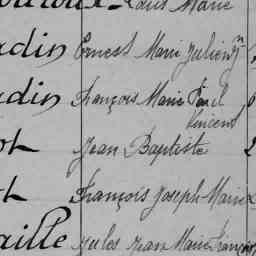 Louis Marie
adin Ernest Marie Julien
adin François Marie Paul
Vincent
ot Jean Baptiste
t François Joseph Marie
aille Jules Jean Marie François